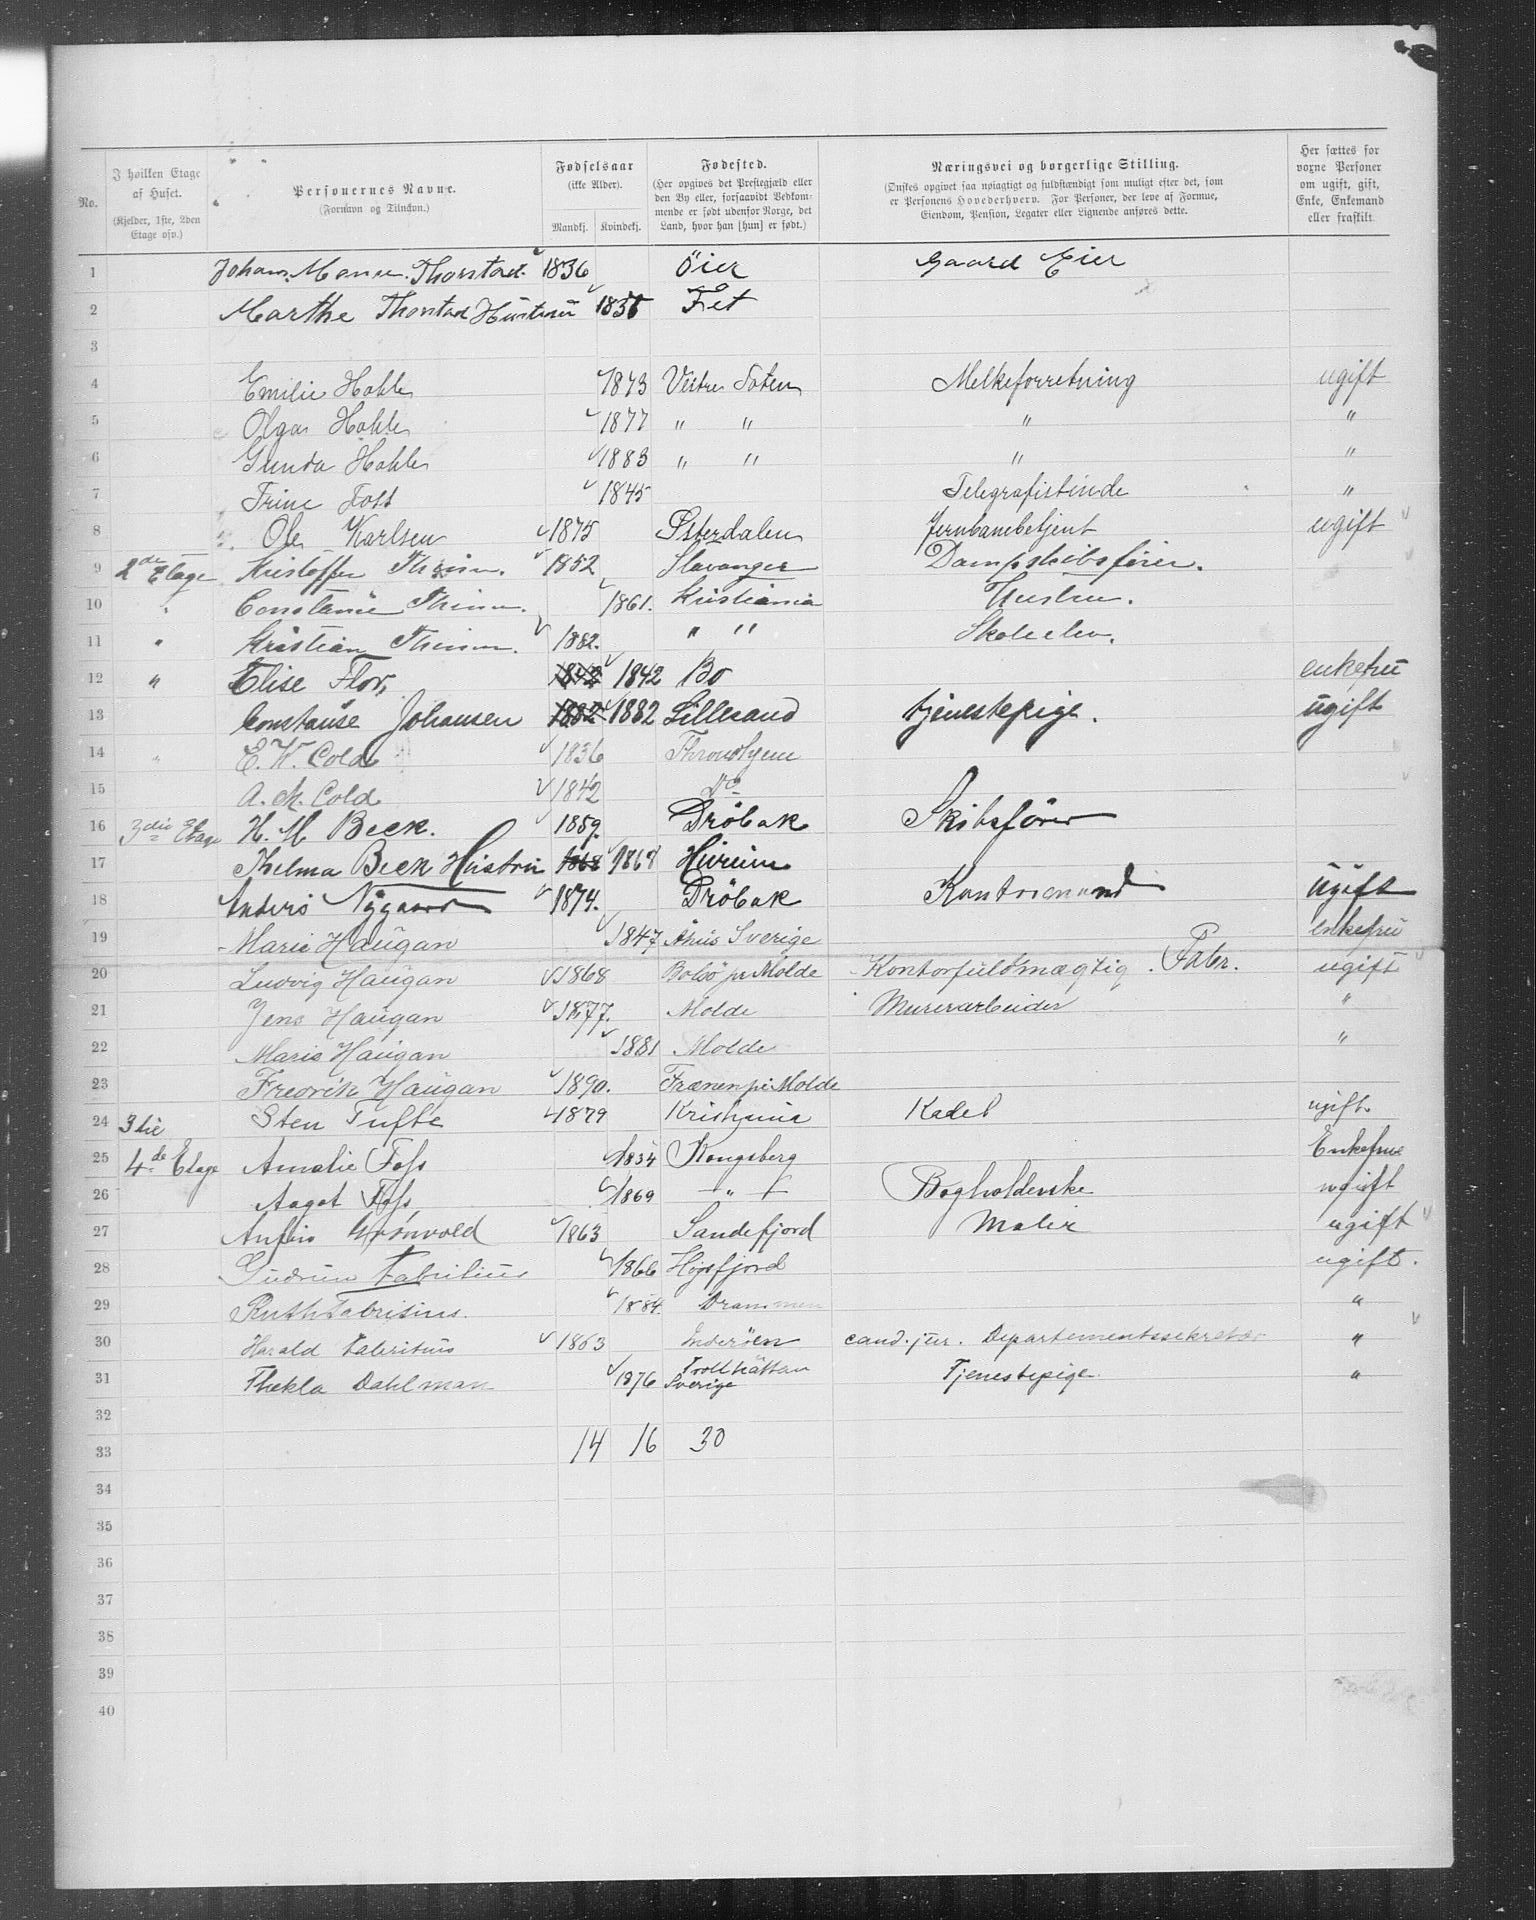 No.
I hvilken Etage af Huset.
(Kjelder, 1ste, 2den Etage osv.)
Personernes Navne.
(Fornavn og Tilnavn.)
Fødselsaar
(ikke Alder).
Mandkj. Kvindekj.
Fødested.
(Her opgives det Prestegjæld eller
den By eller, forsaavidt Vedkom-
mende er født udenfor Norge, det
Land, hvor han [hun] er født.)
Næringsvei og borgerlige Stilling.
(Ønskes opgivet saa nøiagtigt og fuldstændigt som muligt efter det, som
er Personens Hovederhverv. For Personer, der leve af Formue,
Eiendom, Pension, Legater eller Lignende anføres dette.
Her sættes for
voxne Personer
om ugift, gift,
Enke, Enkemand
eller fraskilt.
1 Johan Thorstad. 1836 Öier Gaard Eier
2 Marthe Thorstad Hustrui Fet
3
4 Emilie Hohle 1873 Vestre Toten Melkeforretning ugift
5 Olga Hohle 1877 " " " "
6 Gunda Hohle 1883 " " " "
7 Trine 1845 Telegrafistinde "
8 Ole Karlsen 1875 Østerdalen Jernbanebetjent ugift
9 2de Etage Kristoffer 1852 Stavanger Dampskibsfører.
10 " 1861. Kristiania Hustru.
11 " Kristian 1882. " " Skoleelev.
12 " Elise Flor, 1842 1842 Bo enkefru
13 Constanse Johansen 1882 1882 Lillesand tjenestepige. ugift
14 " E. W. Cold 1836 Throndhjem
15 A. M. Cold 1842 Do
16 3die Etage H. M Beck. 1859. Dröbak Skibsfører
17 Thelma Beck Hustru 1868 1868 Hurum
18 Anders Nygaard 1874. Dröbak Kontormand ugift
19 Marie Haugan 1847 Åhus Sverige Enkefru
20 Ludvig Haugan 1868 Bolsö pr Molde Kontorfuldmægtig. Fabr. ugift
21 Jens Haugan 1877. Molde Murerarbeider "
22 Marie Haugan 1881 Molde "
23 Fredrik Haugan 1890. Frænen pr Molde
24 3die Sten Tufte 1879 Kristiania Kadet ugift.
25 4de Etage Amalie Foss 1834 Kongsberg Enkefrue
26 Aagot Foss, 1869 - " - Bogholderske ugift
27 Grönvold 1863 Sandefjord Maler ugift
28 Gudrun Fabritius 1866 Høgsfjord ugift.
29 Ruth Fabritius. 1884. Drammen "
30 Harald Fabritius 1863 Inderöen cand. jur. Departementssekretær "
31 Thekla Dahlman 1876 Trollhättan Sverige Tjenestepige. "
32
33 14 16 30
34
35
36
37
38
39
40